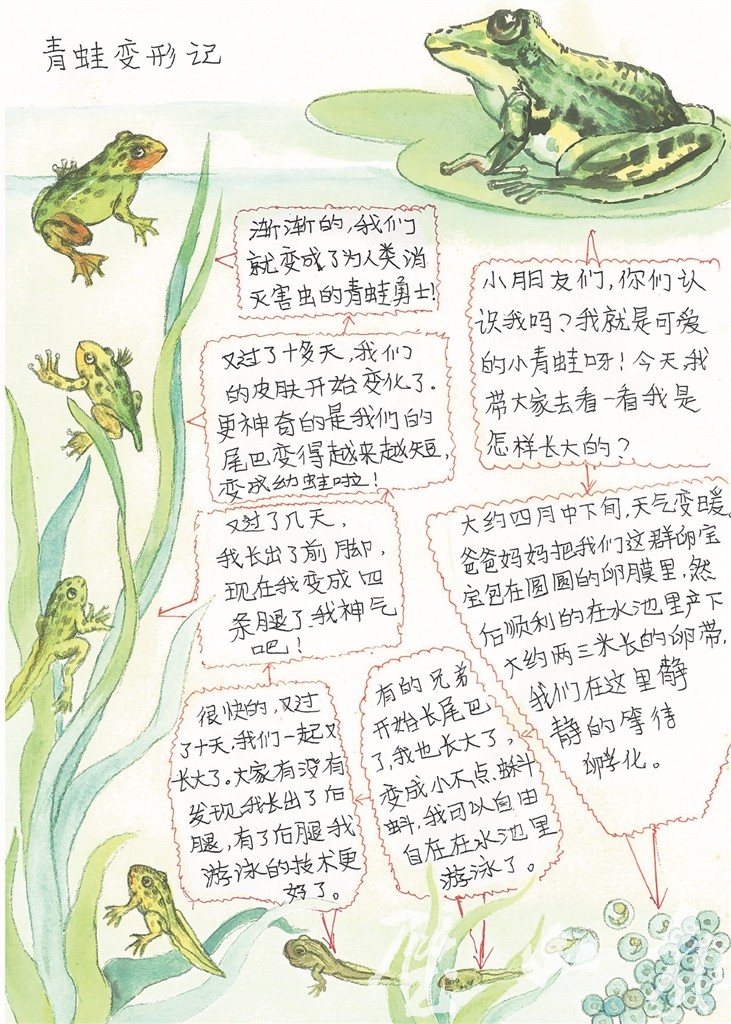 青蛙变形记
小朋友们,你们认
识我吗?我就是可爱
的小青蛙呀!今天,我
带大家去看一看我是
怎样长大的?
大约四月中下旬,天气变暖。
爸爸妈妈把我们这群卵宝
宝包在圆圆的卵膜里,然
后顺利的在水池里产下
大约两三米长的卵带,
我们在这里静
静的等待
孵化。
有的兄弟
开始长尾巴
了,我也长大了,
变成小不点蝌
蚪,我可以自由
自在在水池里
游泳了。
很快的,又过
了十天,我们一起又
长大了。大家有没有
发现,我长出了后
腿,有了后腿我
游泳的技术更
好了。
又过了几天,
我长出了前脚,
现在我变成四
条腿了,我神气
吧!
又过了十多天,我们
的皮肤开始变化了.
更神奇的是我们的
尾巴变得越来越短,
变成幼蛙啦!
渐渐的,我们
就变成了为人类消
灭害虫的青蛙勇士!